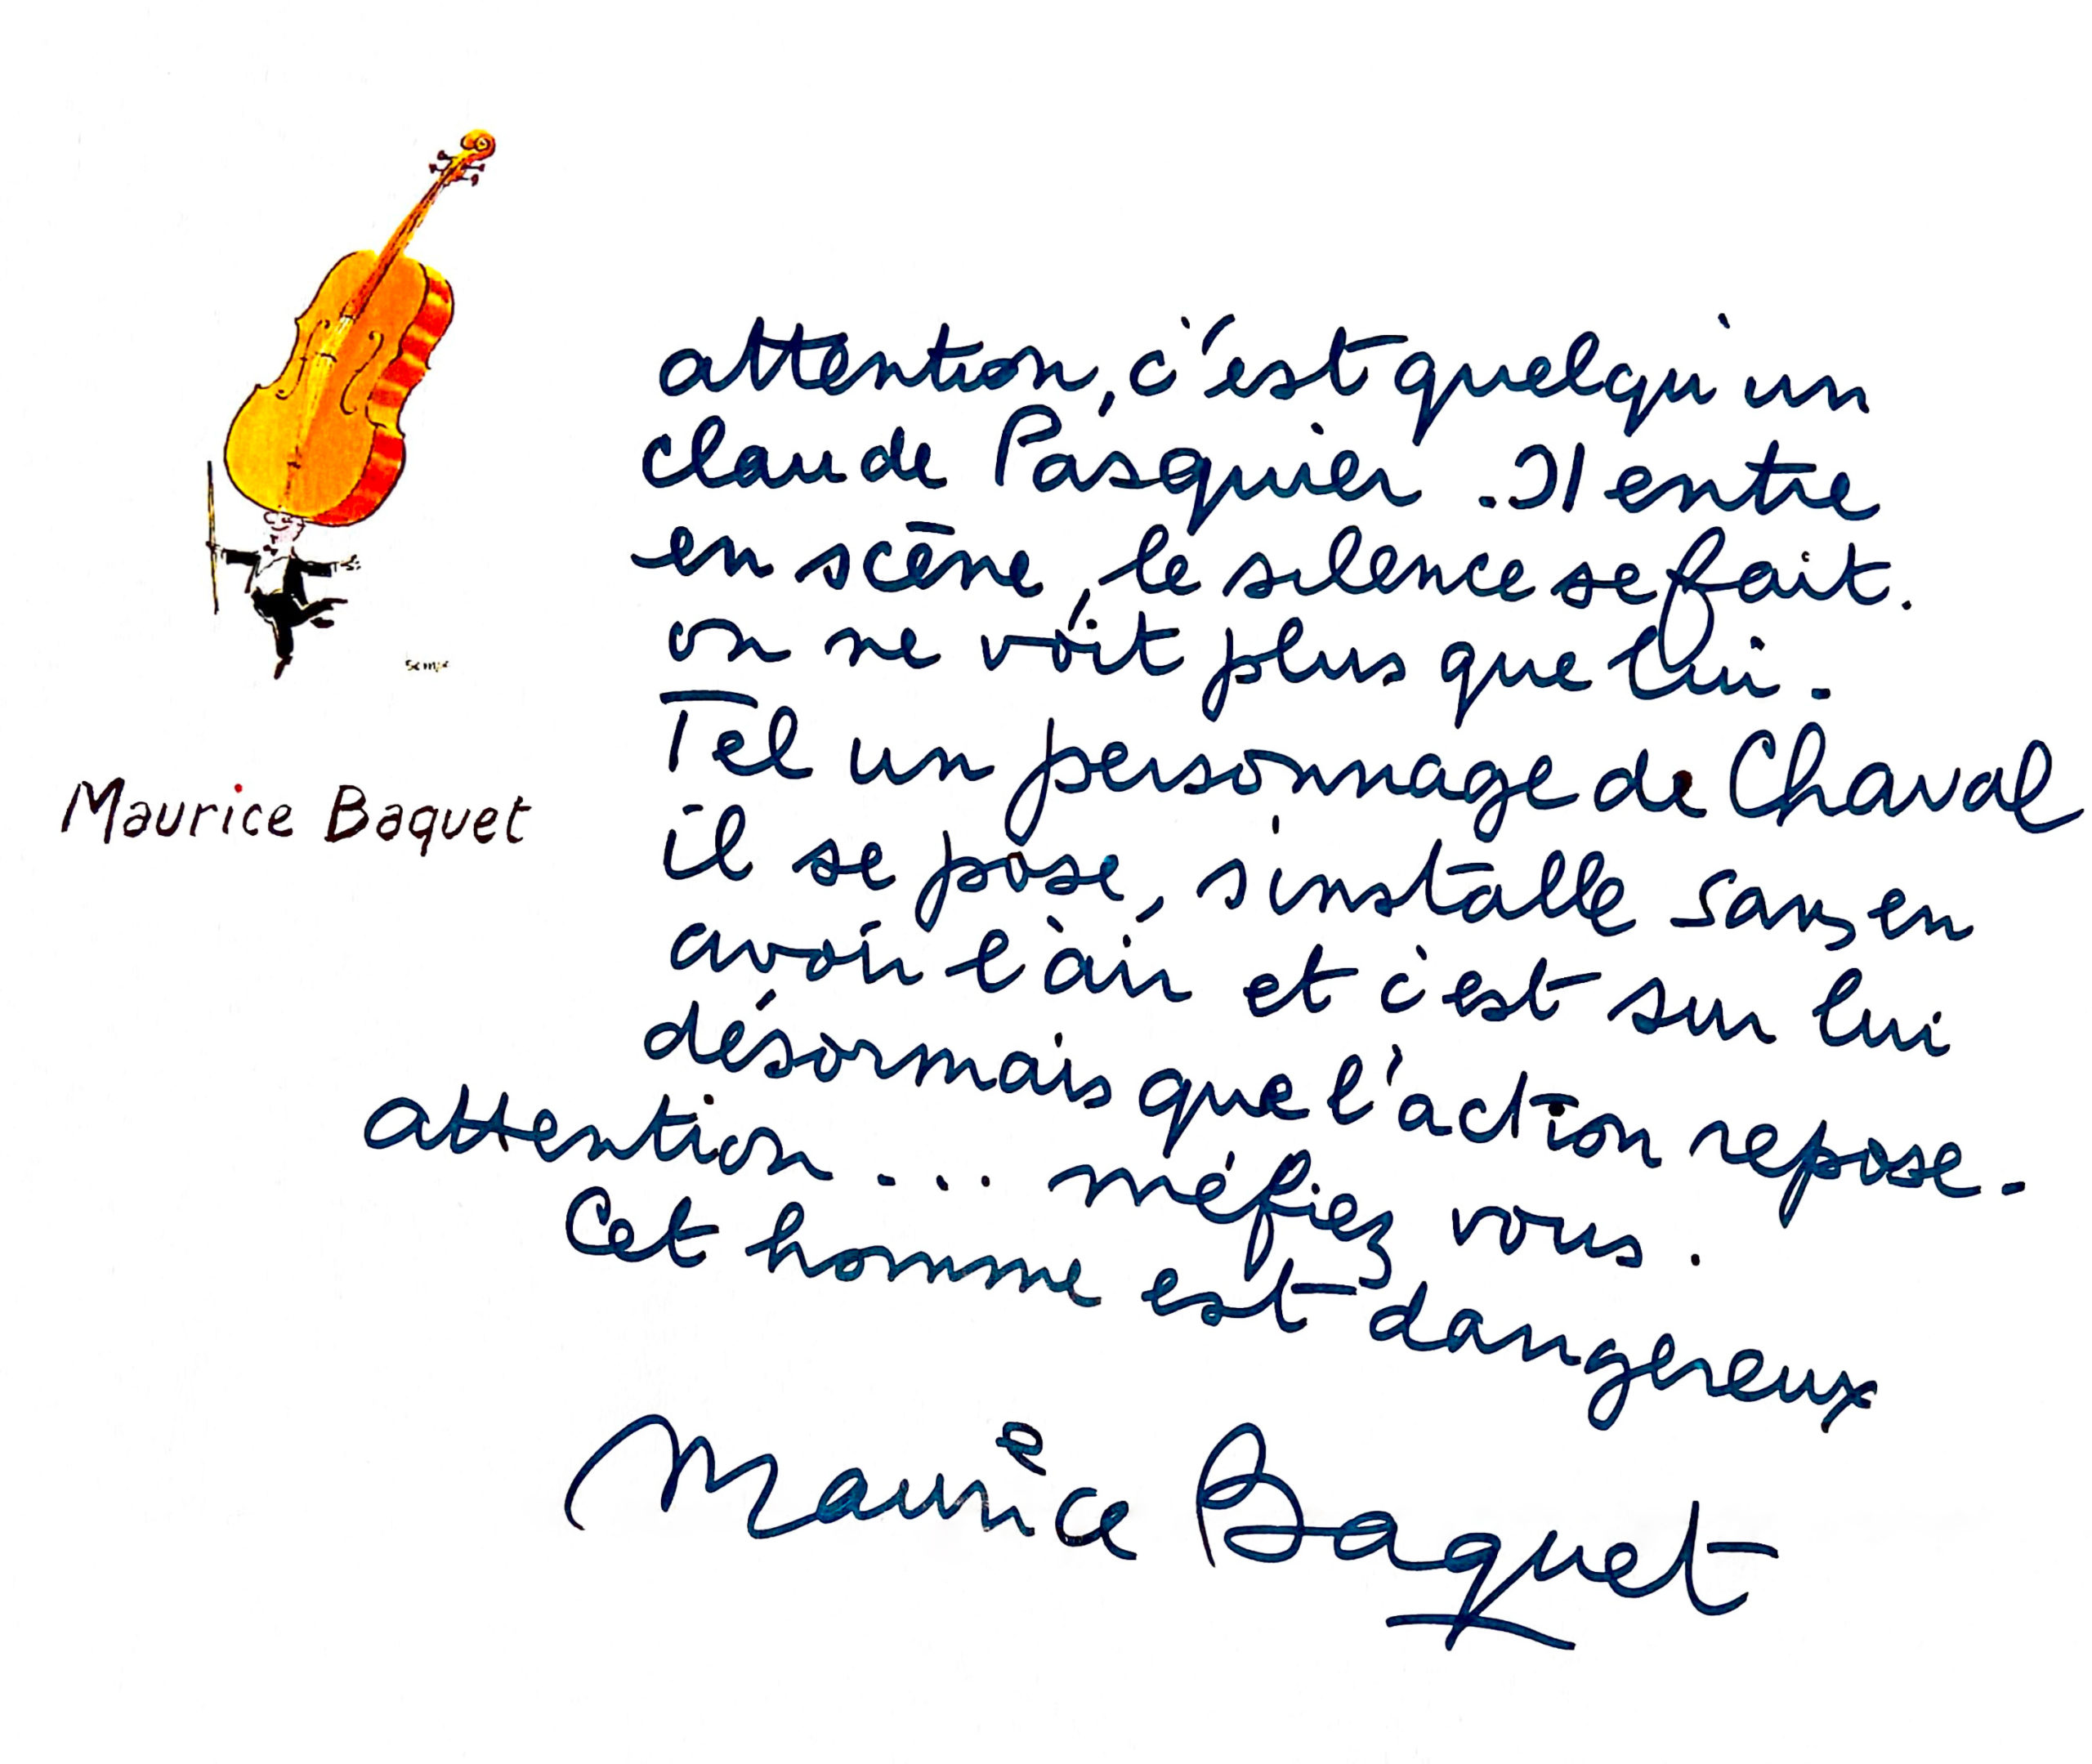 attention, c'est quelqu'un
claude Pasquier. Il entre
en scène, le silence se fait.
on ne voit plus que lui.
Tel un personnage de Chaval
il se pose, s'installe sans en
avoir l'air et c'est sur lui
désormais que l'action repose.
attention... méfiez vous.
Cet homme est dangereux
Maurice Baquet
Sempé
Maurice Baquet